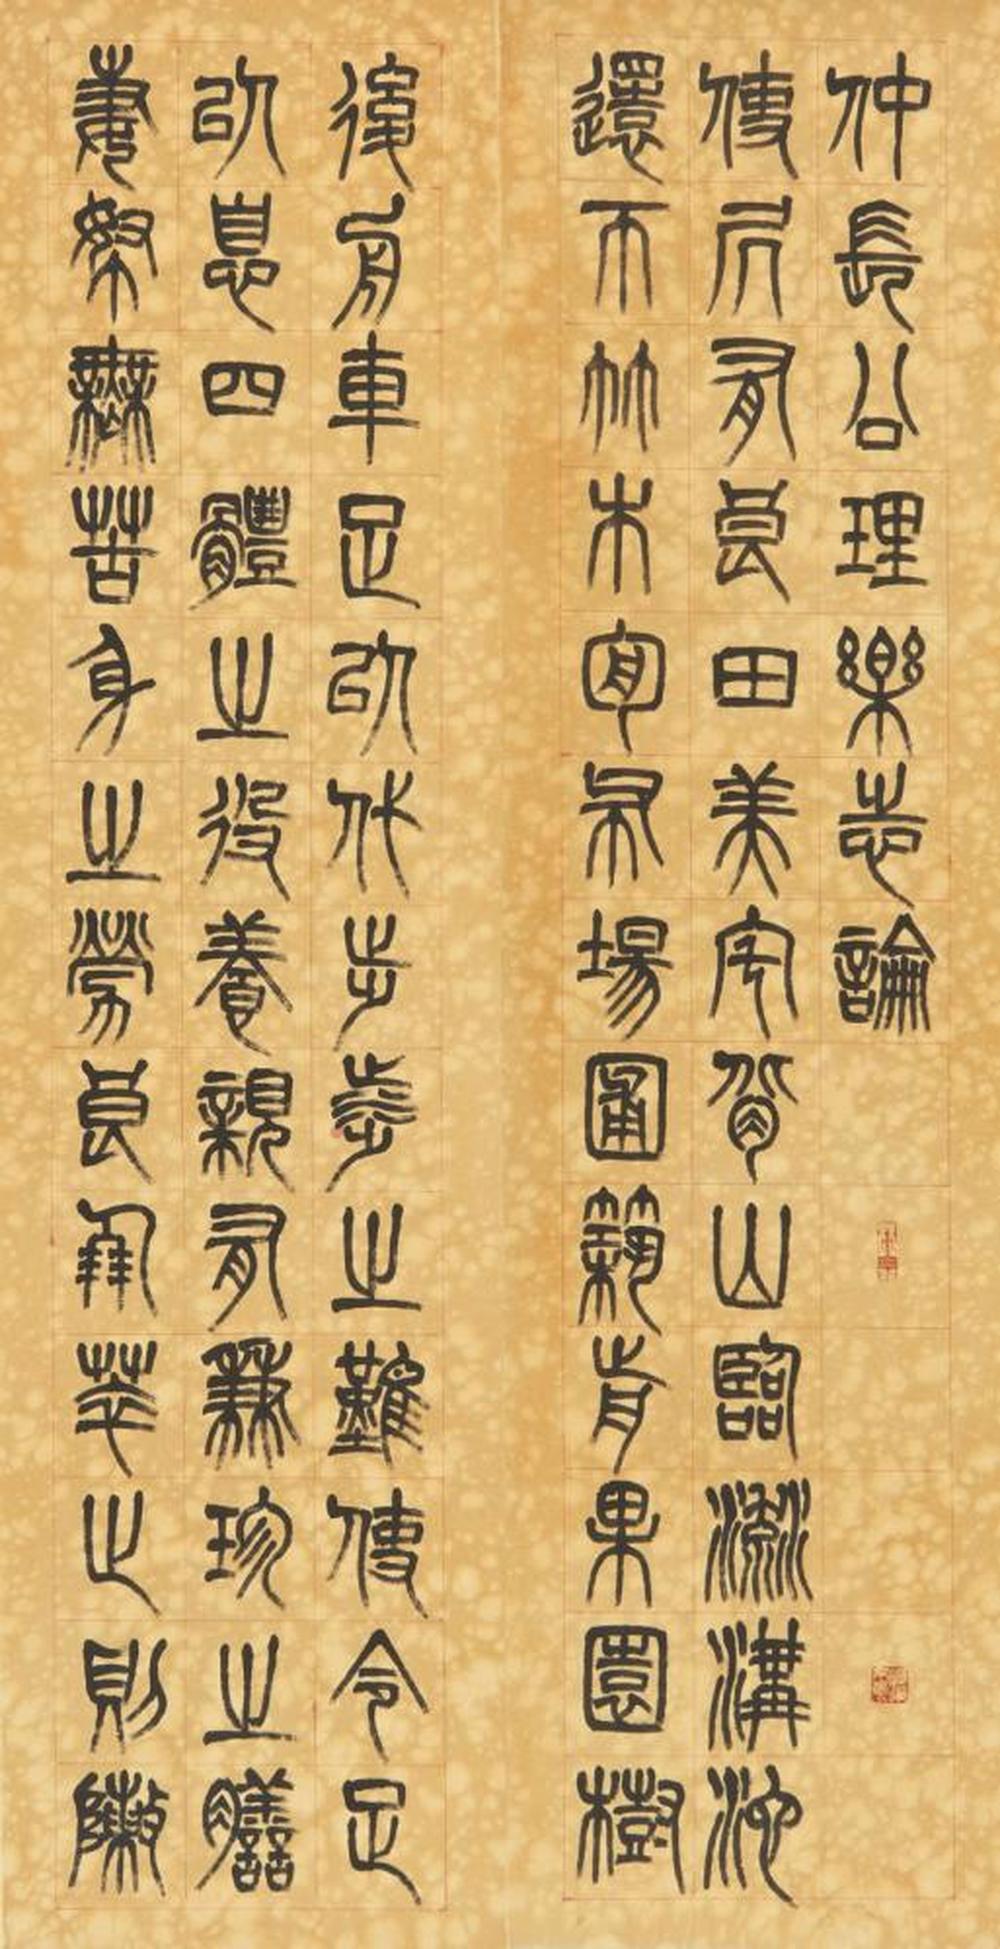 仲長公理樂志論
使居有良田美宅背山臨流溝池
還帀竹木周布場圃築前果園樹
後舟車足以代步涉之難使令足
以息四體之役養親有兼珍之膳
妻孥無苦身之勞良朋萃止則陳